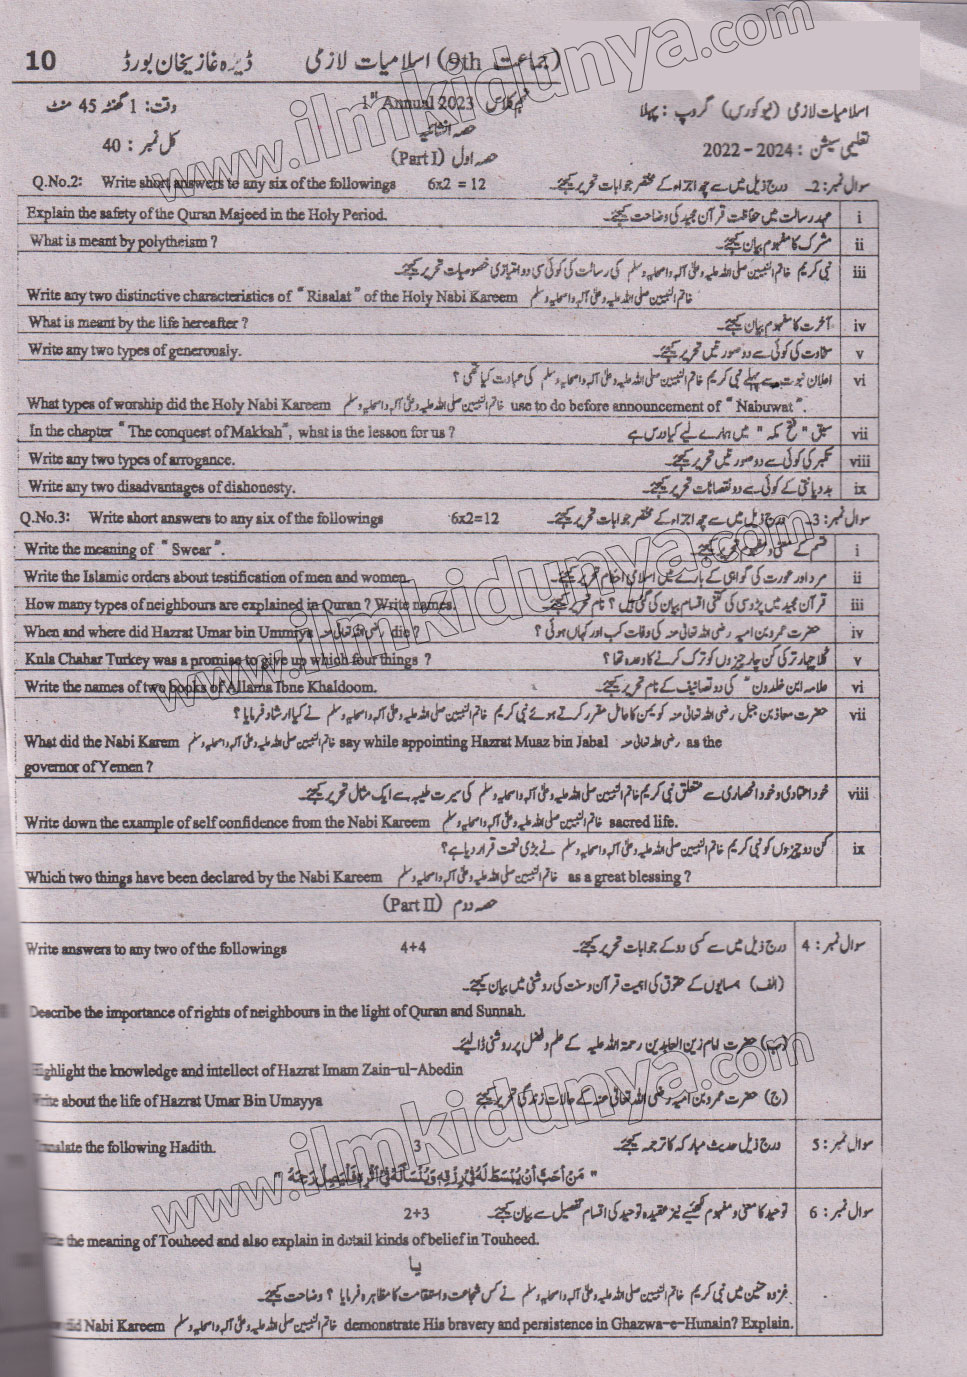 10 ڈیرہ غازیخان بورڈ اسلامیات لازمی (9th جماعت)
وقت: 1 گھنٹہ 45 منٹ نہم کلاس 1st Annual 2023 اسلامیات لازمی (نیو کورس) گروپ : پہلا
حصہ انشائیہ
کل نمبر : 40 حصہ اول (Part I) تعلیمی سیشن : 2024 - 2022
Q.No.2: Write short answers to any six of the followings 6x2 = 12 سوال نمبر: 2۔ درج ذیل میں سے چھ اجزاء کے مختصر جوابات تحریر کیجئے۔
Explain the safety of the Quran Majeed in the Holy Period. عہد رسالت میں حفاظت قرآن مجید کی وضاحت کیجئے۔ i
What is meant by polytheism ? مشرک کا مفہوم بیان کیجئے۔ ii
نبی کریم خاتم النبیین صلی اللہ علیہ وعلی آلہ واصحابہ وسلم کی رسالت کی کوئی سی دو امتیازی خصوصیات تحریر کیجئے۔ iii
Write any two distinctive characteristics of "Risalat" of the Holy Nabi Kareem خاتم النبیین صلی اللہ علیہ وعلی آلہ واصحابہ وسلم
What is meant by the life hereafter ? آخرت کا مفہوم بیان کیجئے۔ iv
Write any two types of generously. سخاوت کی کوئی سے دو صورتیں تحریر کیجئے۔ v
اعلان نبوت سے پہلے نبی کریم خاتم النبیین صلی اللہ علیہ وعلی آلہ واصحابہ وسلم کی عبادت کیا تھی ؟ vi
What types of worship did the Holy Nabi Kareem خاتم النبیین صلی اللہ علیہ وعلی آلہ واصحابہ وسلم use to do before announcement of "Nabuwat".
In the chapter "The conquest of Makkah", what is the lesson for us ? سبق "فتح مکہ" میں ہمارے لیے کیا درس ہے vii
Write any two types of arrogance. تکبر کی کوئی سے دو صورتیں تحریر کیجئے۔ viii
Write any two disadvantages of dishonesty. بددیانتی کے کوئی سے دو نقصانات تحریر کیجئے۔ ix
Q.No.3: Write short answers to any six of the followings 6x2=12 سوال نمبر: 3۔ درج ذیل میں سے چھ اجزاء کے مختصر جوابات تحریر کیجئے۔
Write the meaning of "Swear". قسم کے معنی و مفہوم تحریر کیجئے۔ i
Write the Islamic orders about testification of men and women. مرد اور عورت کی گواہی کے بارے میں اسلامی احکام تحریر کیجئے۔ ii
How many types of neighbours are explained in Quran ? Write names. قرآن مجید میں پڑوسی کی کتنی اقسام بیان کی گئی ہیں ؟ نام تحریر کیجئے۔ iii
When and where did Hazrat Umar bin Ummiya رضی اللہ تعالیٰ عنہ die ? حضرت عمرو بن امیہ رضی اللہ تعالیٰ عنہ کی وفات کب اور کہاں ہوئی ؟ iv
Kula Chahar Turkey was a promise to give up which four things ? کلاہ چہار ترکی کن چار چیزوں کو ترک کرنے کا وعدہ تھا ؟ v
Write the names of two books of Allama Ibne Khaldoom. علامہ ابن خلدونؒ کی دو تصانیف کے نام تحریر کیجئے۔ vi
حضرت معاذ بن جبل رضی اللہ تعالیٰ عنہ کو یمن کا عامل مقرر کرتے ہوئے نبی کریم خاتم النبیین صلی اللہ علیہ وعلی آلہ واصحابہ وسلم نے کیا ارشاد فرمایا ؟ vii
What did the Nabi Karem خاتم النبیین صلی اللہ علیہ وعلی آلہ واصحابہ وسلم say while appointing Hazrat Muaz bin Jabal رضی اللہ تعالیٰ عنہ as the
governor of Yemen ?
خود اعتمادی و خود انحصاری سے متعلق نبی کریم خاتم النبیین صلی اللہ علیہ وعلی آلہ واصحابہ وسلم کی سیرت طیبہ سے ایک مثال تحریر کیجئے۔ viii
Write down the example of self confidence from the Nabi Kareem خاتم النبیین صلی اللہ علیہ وعلی آلہ واصحابہ وسلم sacred life.
کن دو چیزوں کو نبی کریم خاتم النبیین صلی اللہ علیہ وعلی آلہ واصحابہ وسلم نے بڑی نعمت قرار دیا ہے؟ ix
Which two things have been declared by the Nabi Kareem خاتم النبیین صلی اللہ علیہ وعلی آلہ واصحابہ وسلم as a great blessing ?
حصہ دوم (Part II)
Write answers to any two of the followings 4+4 درج ذیل میں سے کسی دو کے جوابات تحریر کیجئے۔ سوال نمبر : 4
(الف) ہمسایوں کے حقوق کی اہمیت قرآن و سنت کی روشنی میں بیان کیجئے۔
Describe the importance of rights of neighbours in the light of Quran and Sunnah.
(ب) حضرت امام زین العابدین رحمۃ اللہ علیہ کے علم و فضل پر روشنی ڈالیئے۔
Highlight the knowledge and intellect of Hazrat Imam Zain-ul-Abedin
Write about the life of Hazrat Umar Bin Umayya (ج) حضرت عمرو بن امیہ رضی اللہ تعالیٰ عنہ کے حالات زندگی تحریر کیجئے
Translate the following Hadith. 3 درج ذیل حدیث مبارکہ کا ترجمہ کیجئے۔ سوال نمبر : 5
"مَنْ اَحَبَّ اَنْ يُّبْسَطَ لَهٗ فِيْ رِزْقِهٖ وَيُنْسَاَ لَهٗ فِيْ اَثَرِهٖ فَلْيَصِلْ رَحِمَهٗ"
2+3 توحید کا معنی و مفہوم لکھئیے نیز عقیدہ توحید کی اقسام تفصیل سے بیان کیجئے۔ سوال نمبر : 6
the meaning of Touheed and also explain in detail kinds of belief in Touheed.
یا
غزوہ حنین میں نبی کریم خاتم النبیین صلی اللہ علیہ وعلی آلہ واصحابہ وسلم نے کس شجاعت و استقامت کا مظاہرہ فرمایا ؟ وضاحت کیجئے۔
did Nabi Kareem خاتم النبیین صلی اللہ علیہ وعلی آلہ واصحابہ وسلم demonstrate His bravery and persistence in Ghazwa-e-Hunain? Explain.
www.ilmkidunya.com
www.ilmkidunya.com
www.ilmkidunya.com